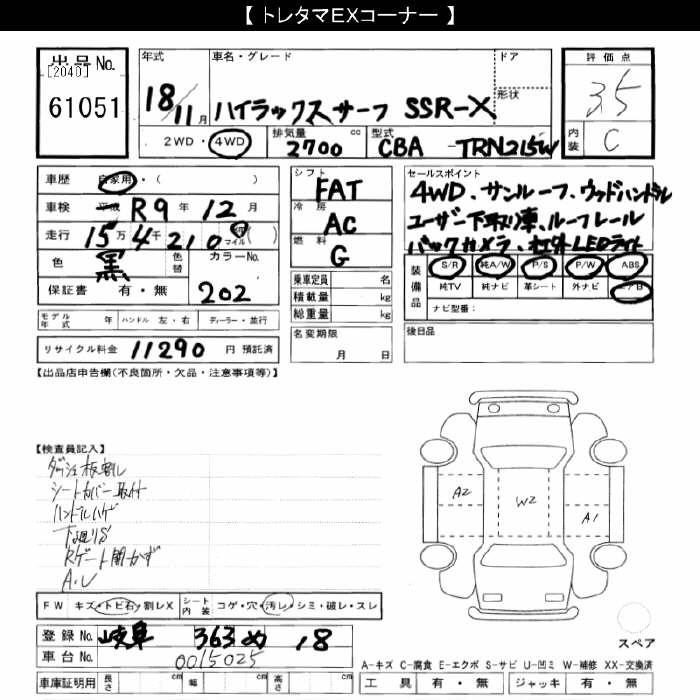 【 トレタマEXコーナー 】
出品No.
[2040]
61051
年式
18/11月
車名・グレード
ハイラックスサーフ SSR-X
ドア
形状
2WD・4WD
排気量
2700 cc
型式
CBA-TRN215W
評価点
3.5
内装
C
車歴 自家用・( )
車検 平成 R9年 12月
走行 15万4千210 km マイル ( )
色 黒 色替
カラーNo.
202
保証書 有・無
モデル年式 年 ハンドル 左・右 ディーラー・並行
リサイクル料金 11290 円 預託済
シフト
FAT
冷房
AC
燃料
G
乗車定員 名
積載量 kg
総重量 kg
名変期限
月 日
セールスポイント
4WD、サンルーフ、ウッドハンドル
ユーザー下取り車、ルーフレール
バックカメラ、社外LEDライト
装備品
S/R 純A/W P/S P/W ABS
純TV 純ナビ 革シート 外ナビ エアB
ナビ型番:
後日品
【出品店申告欄(不良箇所・欠品・注意事項等)】
【検査員記入】
ダッシュ板割れ
シートカバー取付
ハンドルハゲ
下廻りS
Rゲート開かず
A・U
A2
W2
A1
FW キズ・トビ石・割レX
シート内装 コゲ・穴・汚レ・シミ・破レ・スレ
登録No. 岐阜 363 め 18
車台No. 0015025
車庫証明用 長さ cm 幅 cm 高さ cm
スペア
A-キズ C-腐食 E-エクボ S-サビ U-凹ミ W-補修 XX-交換済
工具 有・無 ジャッキ 有・無